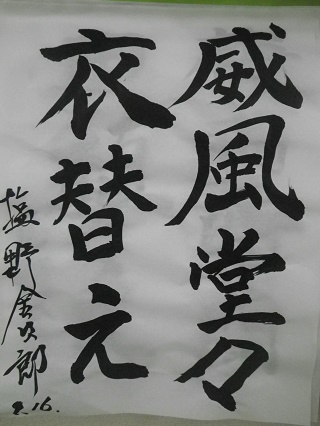 威風堂々
衣替え
塩野金次郎
2.16.